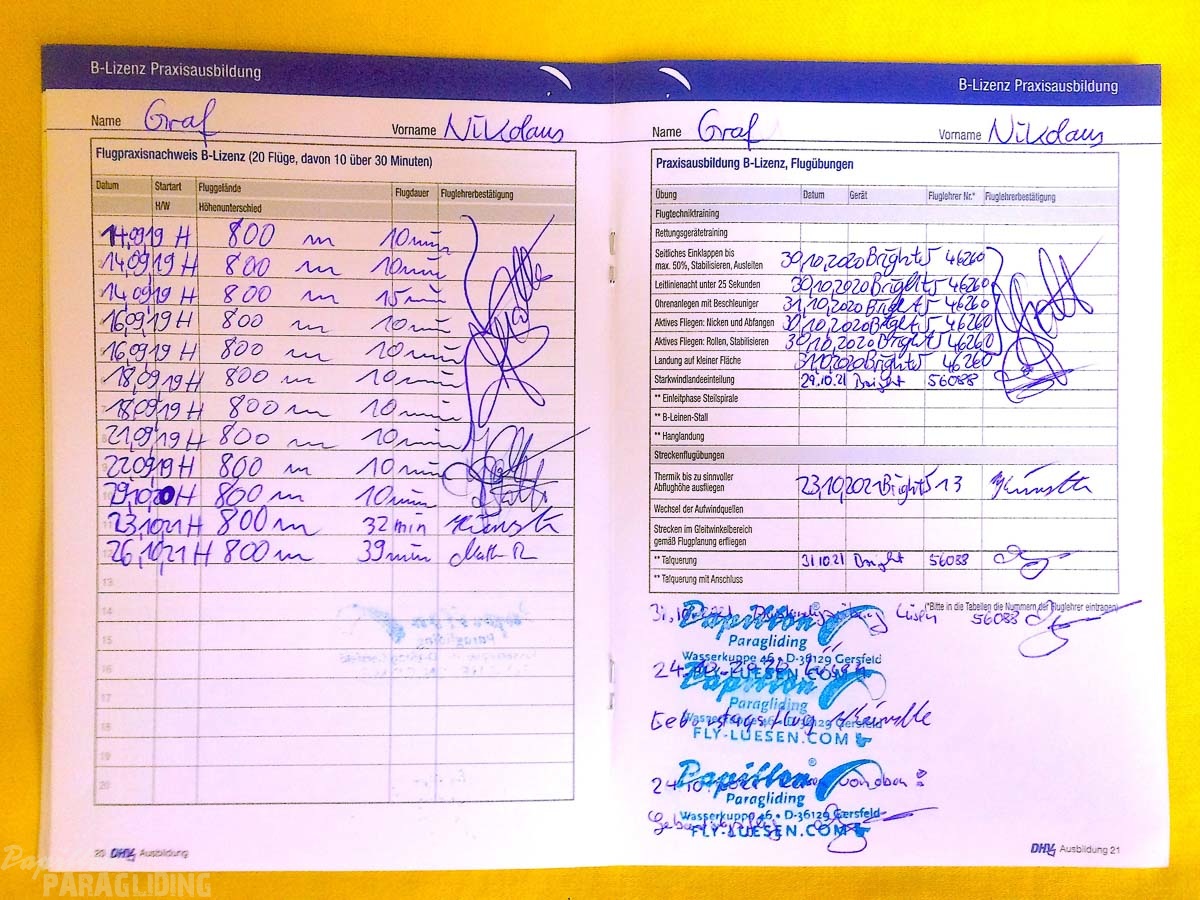 B-Lizenz Praxisausbildung
Name Graf Vorname Nikolaus
Flugpraxisnachweis B-Lizenz (20 Flüge, davon 10 über 30 Minuten)
Datum Startart Fluggelände Flugdauer Fluglehrerbestätigung
H/W Höhenunterschied
14.09.19 H 800 m 10 min
14.09.19 H 800 m 10 min
14.09.19 H 800 m 15 min
16.09.19 H 800 m 10 min
16.09.19 H 800 m 10 min
18.09.19 H 800 m 10 min
18.09.19 H 800 m 10 min
21.09.19 H 800 m 10 min
22.09.19 H 800 m 10 min
29.10.20 H 800 m 10 min
11 23.10.21 H 800 m 32 min
12 26.10.21 H 800 m 39 min
13
14
15
16
17
18
19
20
20 DHV Ausbildung
B-Lizenz Praxisausbildung
Name Graf Vorname Nikolaus
Praxisausbildung B-Lizenz, Flugübungen
Übung Datum Gerät Fluglehrer Nr.* Fluglehrerbestätigung
Flugtechniktraining
Rettungsgerätetraining
Seitliches Einklappen bis
max. 50%, Stabilisieren, Ausleiten 30.10.2020 Bright 5 46260
Leitlinienacht unter 25 Sekunden 30.10.2020 Bright 5 46260
Ohrenanlegen mit Beschleuniger 31.10.2020 Bright 5 46260
Aktives Fliegen: Nicken und Abfangen 30.10.2020 Bright 5 46260
Aktives Fliegen: Rollen, Stabilisieren 30.10.2020 Bright 5 46260
Landung auf kleiner Fläche 31.10.2020 Bright 5 46260
Starkwindlandeeinteilung 29.10.21 Bright 56088
** Einleitphase Steilspirale
** B-Leinen-Stall
** Hanglandung
Streckenflugübungen
Thermik bis zu sinnvoller
Abflughöhe ausfliegen 23.10.2021 Bright 5 13
Wechsel der Aufwindquellen
Strecken im Gleitwinkelbereich
gemäß Flugplanung erfliegen
** Talquerung 31.10.21 Bright 56088
** Talquerung mit Anschluss
(*Bitte in die Tabellen die Nummern der Fluglehrer eintragen)
31.10.2021 Lüsen 56088
Papillon®
Paragliding
Wasserkuppe 46 • D-36129 Gersfeld
FLY-LUESEN.COM
Papillon
Paragliding
Wasserkuppe 46 • D-36129 Gersfeld
Geburtstagsflug
FLY-LUESEN.COM
Papillon®
von oben!
Paragliding
Wasserkuppe 46 • D-36129 Gersfeld
FLY-LUESEN.COM
DHV Ausbildung 21
Papillon
PARAGLIDING